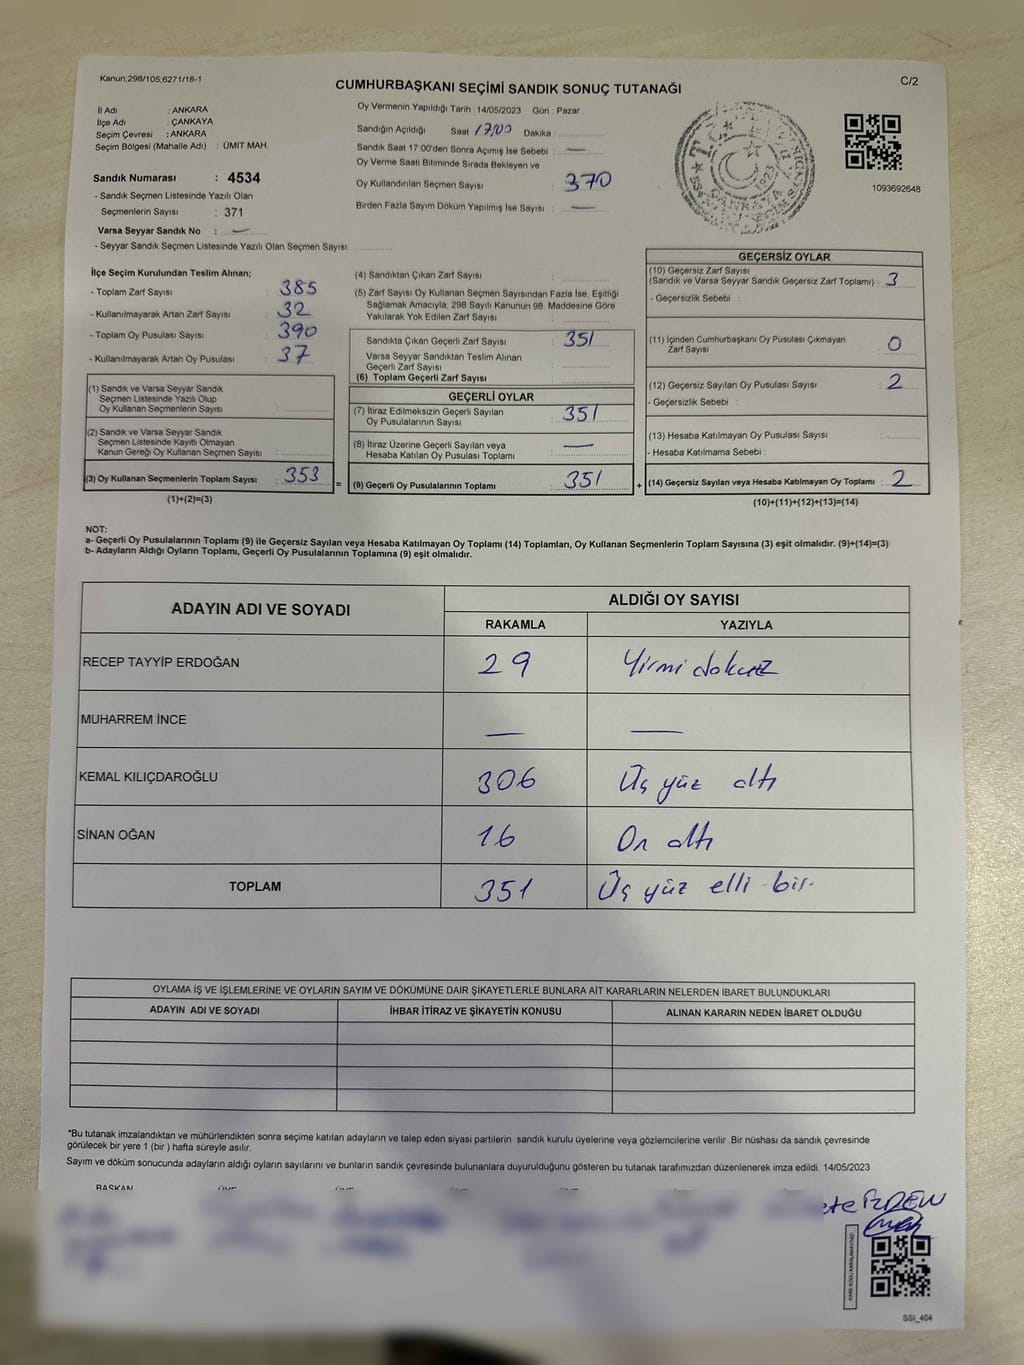 Kanun;298/105;6271/18-1
C/2
CUMHURBAŞKANI SEÇİMİ SANDIK SONUÇ TUTANAĞI
İl Adı : ANKARA
İlçe Adı : ÇANKAYA
Seçim Çevresi : ANKARA
Seçim Bölgesi (Mahalle Adı) : ÜMİT MAH.
Sandık Numarası : 4534
- Sandık Seçmen Listesinde Yazılı Olan
Seçmenlerin Sayısı : 371
Varsa Seyyar Sandık No : —
- Seyyar Sandık Seçmen Listesinde Yazılı Olan Seçmen Sayısı:
Oy Vermenin Yapıldığı Tarih : 14/05/2023 Gün : Pazar
Sandığın Açıldığı Saat 17,00 Dakika :
Sandık Saat 17:00'den Sonra Açımış İse Sebebi : —
Oy Verme Saati Bitiminde Sırada Bekleyen ve
Oy Kullandırılan Seçmen Sayısı : 370
Birden Fazla Sayım Döküm Yapılmış İse Sayısı : —
1093692648
İlçe Seçim Kurulundan Teslim Alınan;
- Toplam Zarf Sayısı : 385
- Kullanılmayarak Artan Zarf Sayısı : 32
- Toplam Oy Pusulası Sayısı : 390
- Kullanılmayarak Artan Oy Pusulası : 37
(1) Sandık ve Varsa Seyyar Sandık
Seçmen Listesinde Yazılı Olup
Oy Kullanan Seçmenlerin Sayısı :
(2) Sandık ve Varsa Seyyar Sandık
Seçmen Listesinde Kayıtlı Olmayan
Kanun Gereği Oy Kullanan Seçmen Sayısı :
(3) Oy Kullanan Seçmenlerin Toplam Sayısı : 353
(1)+(2)=(3)
=
(4) Sandıktan Çıkan Zarf Sayısı :
(5) Zarf Sayısı Oy Kullanan Seçmen Sayısından Fazla İse, Eşitliği
Sağlamak Amacıyla, 298 Sayılı Kanunun 98. Maddesine Göre
Yakılarak Yok Edilen Zarf Sayısı :
Sandıkta Çıkan Geçerli Zarf Sayısı : 351
Varsa Seyyar Sandıktan Teslim Alınan
Geçerli Zarf Sayısı :
(6) Toplam Geçerli Zarf Sayısı :
GEÇERLİ OYLAR
(7) İtiraz Edilmeksizin Geçerli Sayılan
Oy Pusulalarının Sayısı : 351
(8) İtiraz Üzerine Geçerli Sayılan veya
Hesaba Katılan Oy Pusulası Toplamı : —
(9) Geçerli Oy Pusulalarının Toplamı : 351
+
GEÇERSİZ OYLAR
(10) Geçersiz Zarf Sayısı
(Sandık ve Varsa Seyyar Sandık Geçersiz Zarf Toplamı) : 3
- Geçersizlik Sebebi :
(11) İçinden Cumhurbaşkanı Oy Pusulası Çıkmayan
Zarf Sayısı : 0
(12) Geçersiz Sayılan Oy Pusulası Sayısı : 2
- Geçersizlik Sebebi :
(13) Hesaba Katılmayan Oy Pusulası Sayısı :
- Hesaba Katılmama Sebebi :
(14) Geçersiz Sayılan veya Hesaba Katılmayan Oy Toplamı : 2
(10)+(11)+(12)+(13)=(14)
NOT:
a- Geçerli Oy Pusulalarının Toplamı (9) ile Geçersiz Sayılan veya Hesaba Katılmayan Oy Toplamı (14) Toplamları, Oy Kullanan Seçmenlerin Toplam Sayısına (3) eşit olmalıdır. (9)+(14)=(3)
b- Adayların Aldığı Oyların Toplamı, Geçerli Oy Pusulalarının Toplamına (9) eşit olmalıdır.
ADAYIN ADI VE SOYADI ALDIĞI OY SAYISI
RAKAMLA YAZIYLA
RECEP TAYYİP ERDOĞAN 29 Yirmi dokuz
MUHARREM İNCE — —
KEMAL KILIÇDAROĞLU 306 Üç yüz altı
SİNAN OĞAN 16 On altı
TOPLAM 351 Üç yüz elli bir
OYLAMA İŞ VE İŞLEMLERİNE VE OYLARIN SAYIM VE DÖKÜMÜNE DAİR ŞİKAYETLERLE BUNLARA AİT KARARLARIN NELERDEN İBARET BULUNDUKLARI
ADAYIN ADI VE SOYADI İHBAR İTİRAZ VE ŞİKAYETİN KONUSU ALINAN KARARIN NEDEN İBARET OLDUĞU
*Bu tutanak imzalandıktan ve mühürlendikten sonra seçime katılan adayların ve talep eden siyasi partilerin sandık kurulu üyelerine veya gözlemcilerine verilir .Bir nüshası da sandık çevresinde
görülecek bir yere 1 (bir ) hafta süreyle asılır.
Sayım ve döküm sonucunda adayların aldığı oyların sayılarını ve bunların sandık çevresinde bulunanlara duyurulduğunu gösteren bu tutanak tarafımızdan düzenlenerek imza edildi. 14/05/2023
BAŞKAN
SSI_404